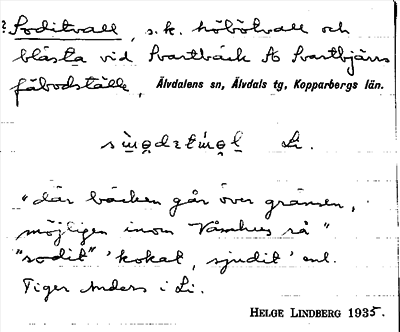 ? Soditvall, s.k. höbölvall och
blästa vid Svartbäck A Svartbjärns
fäbodställe, Älvdalens sn, Älvdals tg, Kopparbergs län.
Li.
"där bäcken går över gränsen,
möjligen inom Våmhus rå"
"sodit" 'kokat, sjudit' enl.
Tiger Anders i Li.
HELGE LINDBERG 1935.